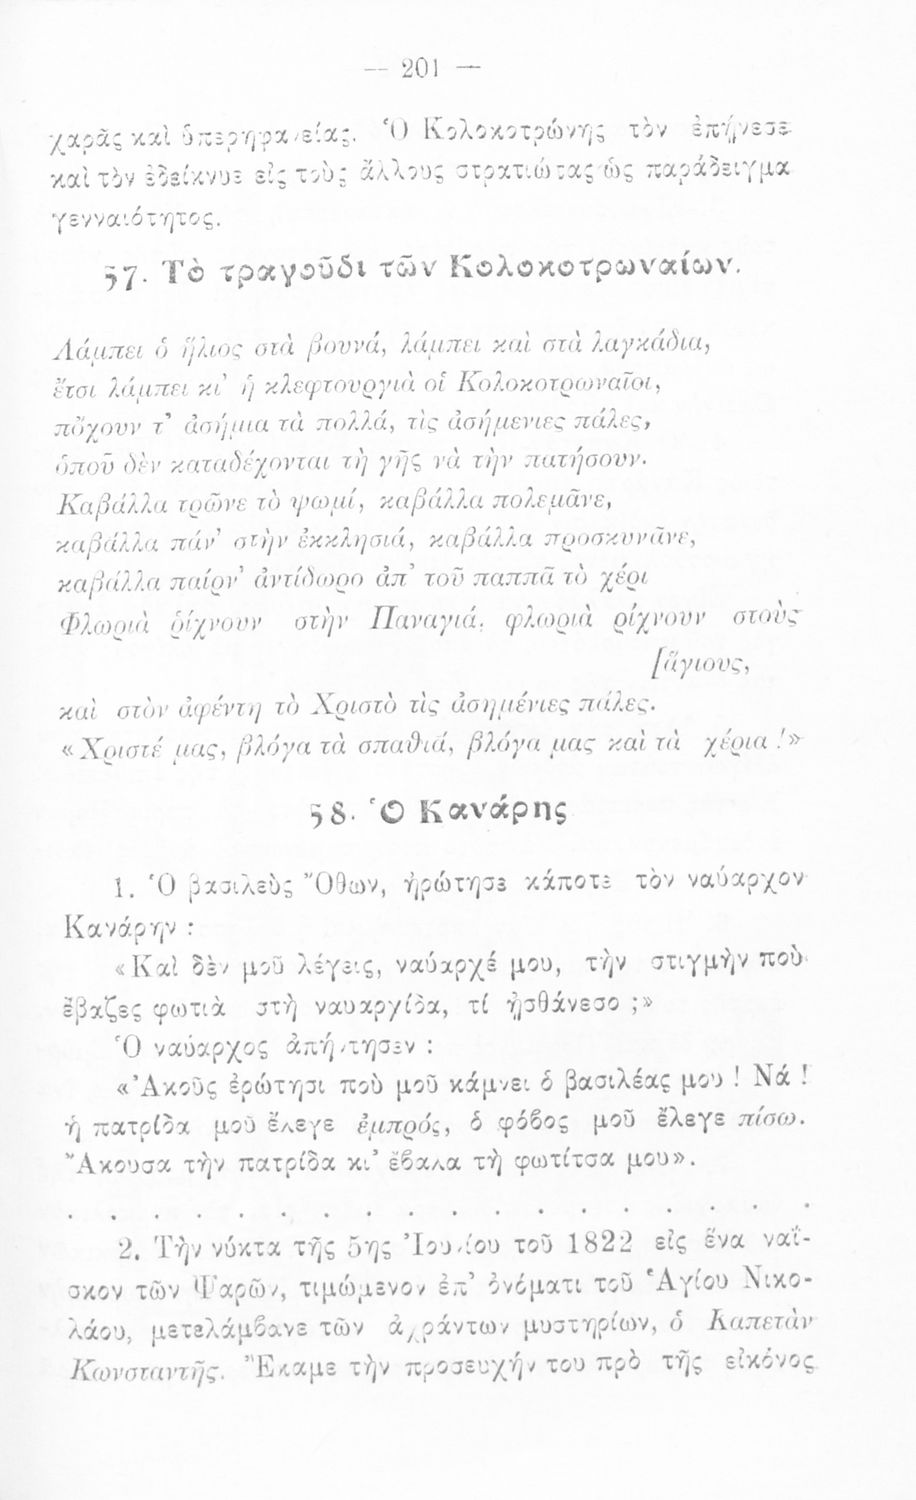 — 201 —
χαρᾶς καὶ ὑπερηφανείας. Ὁ Κολοκοτρώνης τὸν ἐπῄνεσε
καὶ τὸν ἐδείκνυε εἰς τοὺς ἄλλους στρατιώτας ὡς παράδειγμα
γενναιότητος.
57. Τὸ τραγοῦδι τῶν Κολοκοτρωναίων.
Λάμπει ὁ ἥλιος στὰ βουνά, λάμπει καὶ στὰ λαγκάδια,
ἔτσι λάμπει κι' ἡ κλεφτουργιὰ οἱ Κολοκοτρωναῖοι,
πὄχουν τ' ἀσήμια τὰ πολλά, τὶς ἀσήμενιες πάλες,
ὁποῦ δὲν καταδέχονται τὴ γῆς νὰ τὴν πατήσουν.
Καβάλλα τρῶνε τὸ ψωμί, καβάλλα πολεμᾶνε,
καβάλλα πάν' στὴν ἐκκλησιά, καβάλλα προσκυνᾶνε,
καβάλλα παίρν' ἀντίδωρο ἀπ' τοῦ παππᾶ τὸ χέρι
Φλωριὰ ῥίχνουν στὴν Παναγιά, φλωριὰ ρίχνουν στοὺς
[ἅγιους,
καὶ στὸν ἀφέντη τὸ Χριστὸ τὶς ἀσημένιες πάλες.
«Χριστέ μας, βλόγα τὰ σπαθιά, βλόγα μας καὶ τὰ χέρια !»
58. Ὁ Κανάρης
1. Ὁ βασιλεὺς Ὄθων, ἠρώτησε κάποτε τὸν ναύαρχον
Κανάρην :
«Καὶ δὲν μοῦ λέγεις, ναύαρχέ μου, τὴν στιγμὴν ποὺ
ἔβαζες φωτιὰ στὴ ναυαργίδα, τί ᾐσθάνεσο ;»
Ὁ ναύαρχος ἀπήντησεν :
«Ἀκοῦς ἐρώτησι ποὺ μοῦ κάμνει ὁ βασιλέας μου ! Νά !
ἡ πατρίδα μοῦ ἔλεγε ἐμπρός, ὁ φόβος μοῦ ἔλεγε πίσω.
Ἄκουσα τὴν πατρίδα κι' ἔβαλα τὴ φωτίτσα μου».
. . . . . . . . . . . . . . . . . .
2. Τὴν νύκτα τῆς 5ης Ἰουνίου τοῦ 1822 εἰς ἕνα ναΐ-
σκον τῶν Ψαρῶν, τιμώμενον ἐπ' ὀνόματι τοῦ Ἁγίου Νικο-
λάου, μετελάμβανε τῶν ἀχράντων μυστηρίων, ὁ Καπετὰν
Κωνσταντῆς. Ἔκαμε τὴν προσευχήν του πρὸ τῆς εἰκόνος